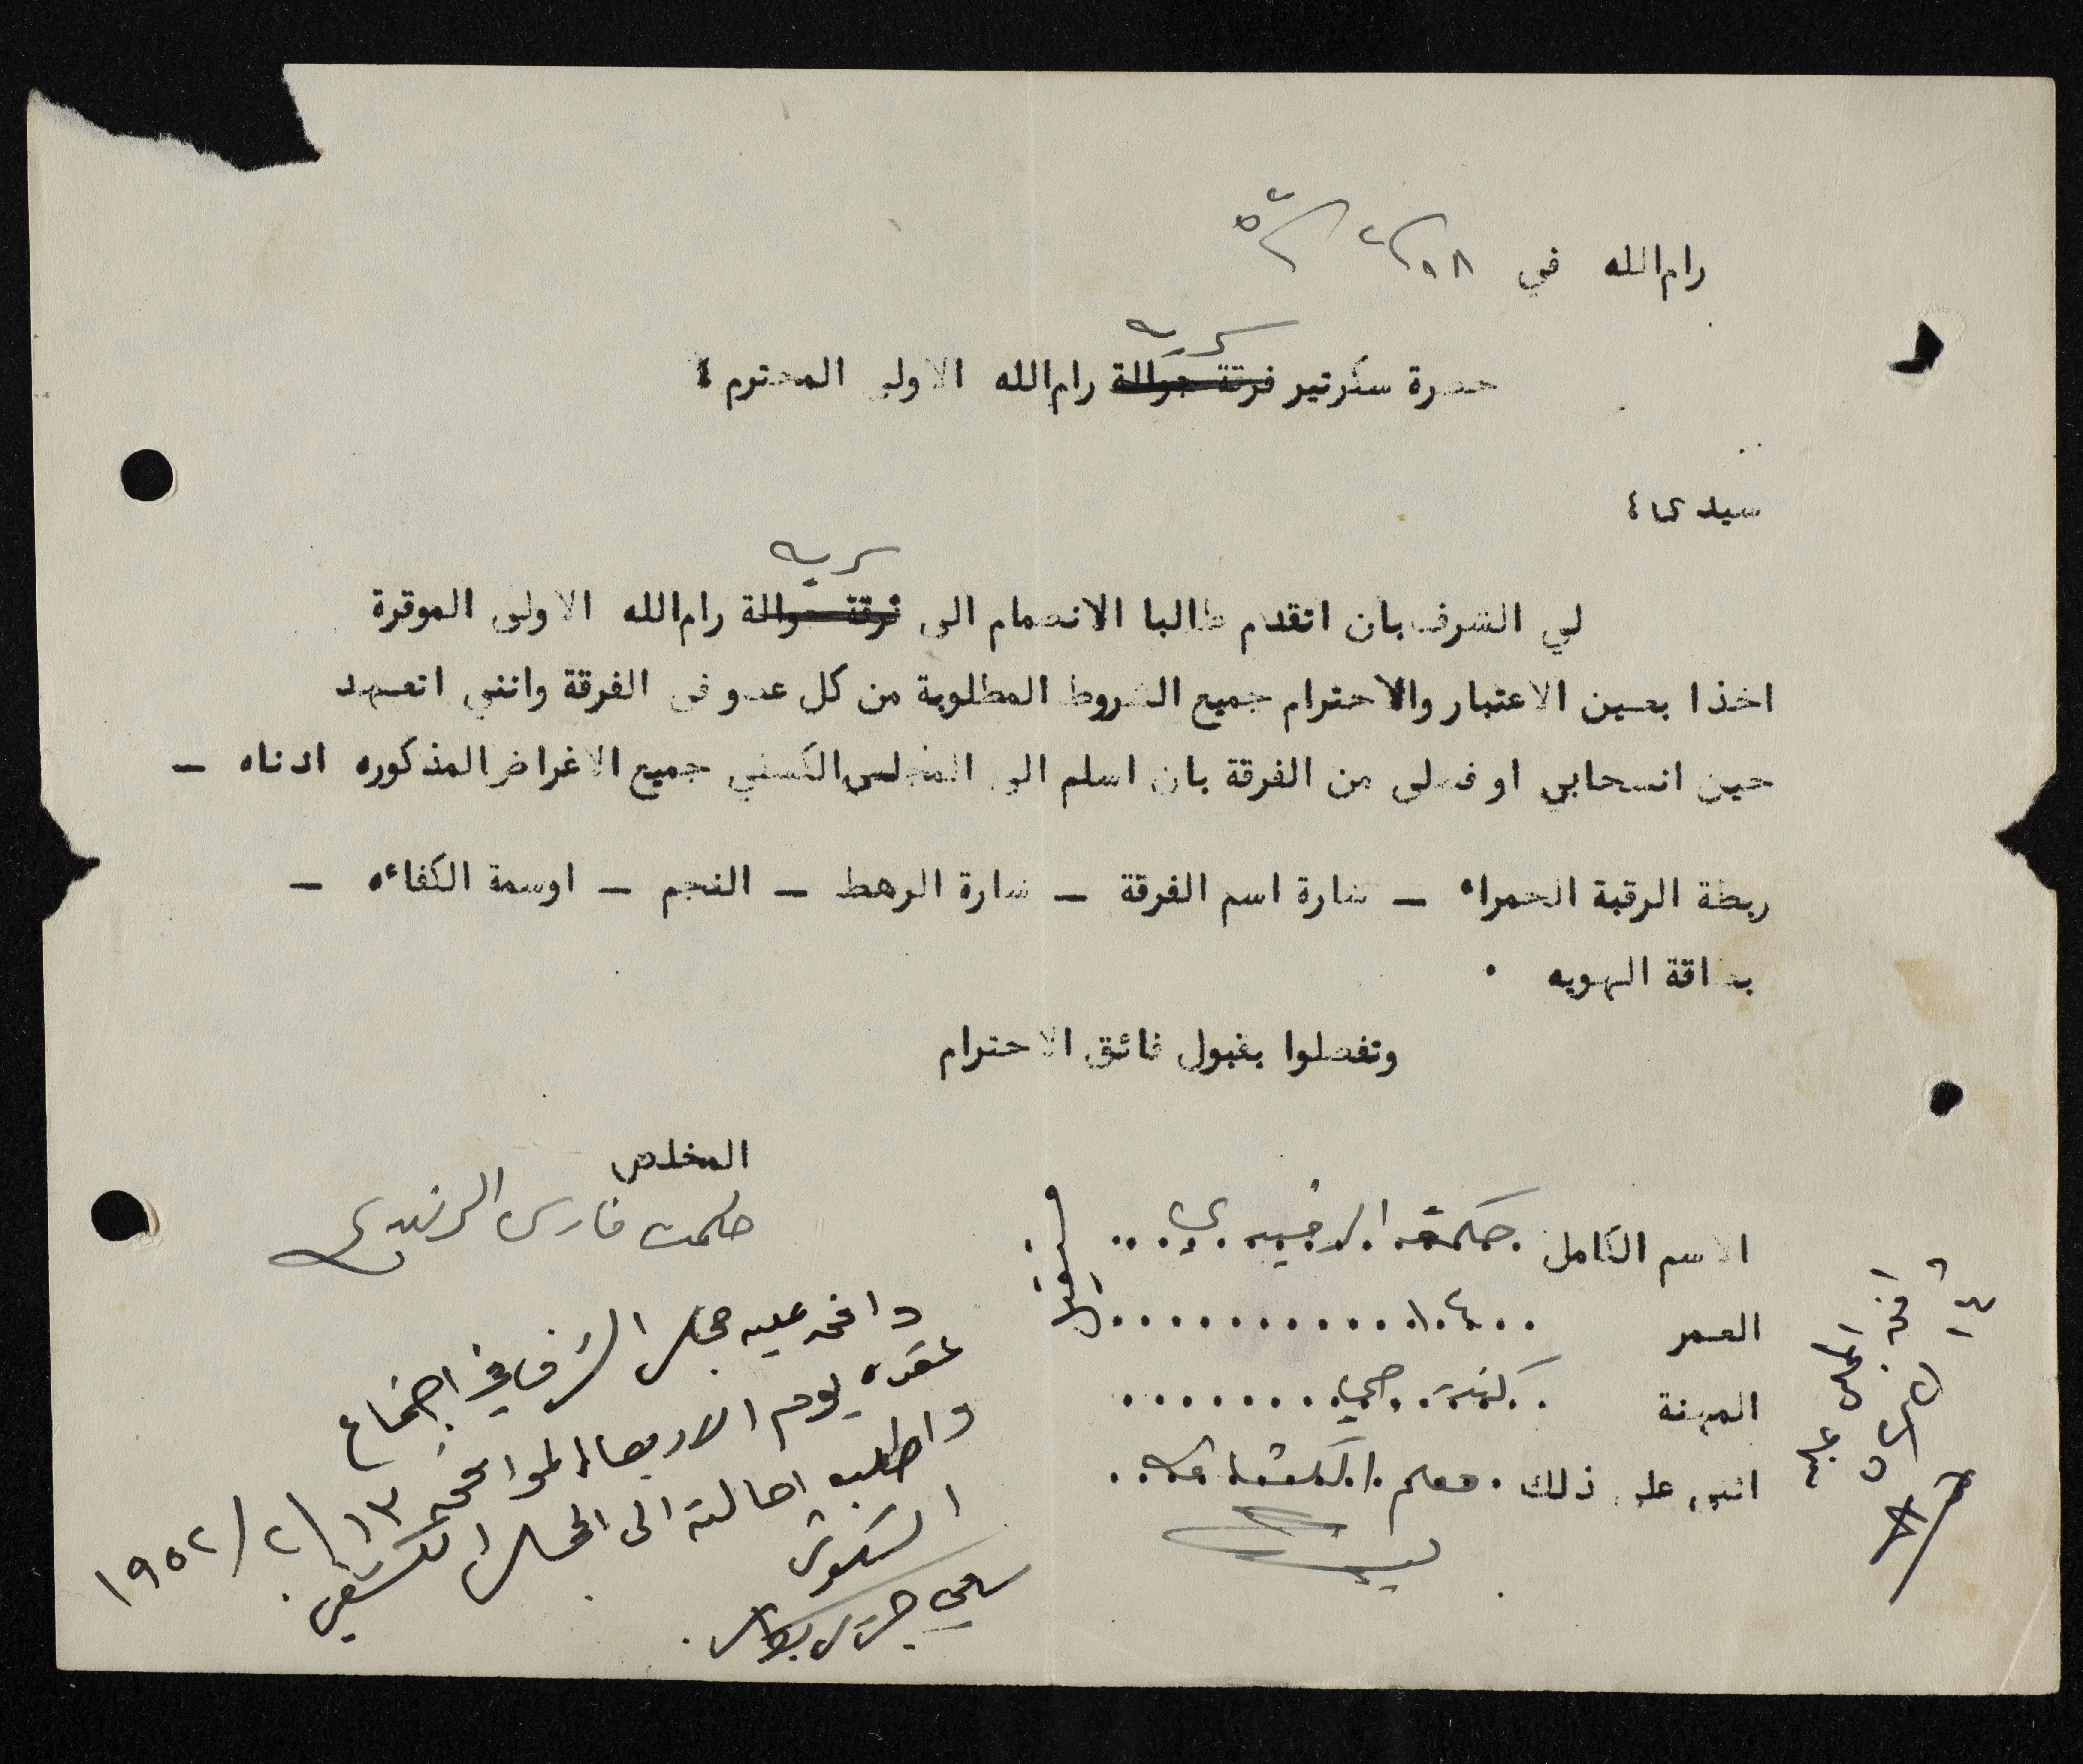 رام الله في ٨/٢/٥٢
سرية
حضرة سكرتير فرقة جوالة رام الله الاولى المحترم ؛
سيدى ؛
سرية
لي الشرف بان اتقدم طالبا الانضمام الى فرقة جوالة رام الله الاولى الموقرة
اخذا بعين الاعتبار والاحترام جميع الشروط المطلوبة من كل عضو في الفرقة وانني اتعهد
حين انسحابي او فصلي من الفرقة بان اسلم الى المجلس الكشفي جميع الاغراض المذكوره ادناه —
ربطة الرقبة الحمراء — شارة اسم الفرقة — شارة الرهط — النجم — اوسمة الكفاءه —
بطاقة الهويه .
وتفضلوا بقبول فائق الاحترام
المخلص
حكمت فارس الرفيدي
الاسم الكامل حكمة الرفيدي
العمر
المهنة
اثنى على ذلك معلم الكشافة
وافق عليه مجلس الشرف في اجتماع
عقده يوم الاربعاء الموافق ١٣/٢/١٩٥٢
واطلب احالته الى المجلس الكشفي.
السكرتير
وافق المجلس عليه